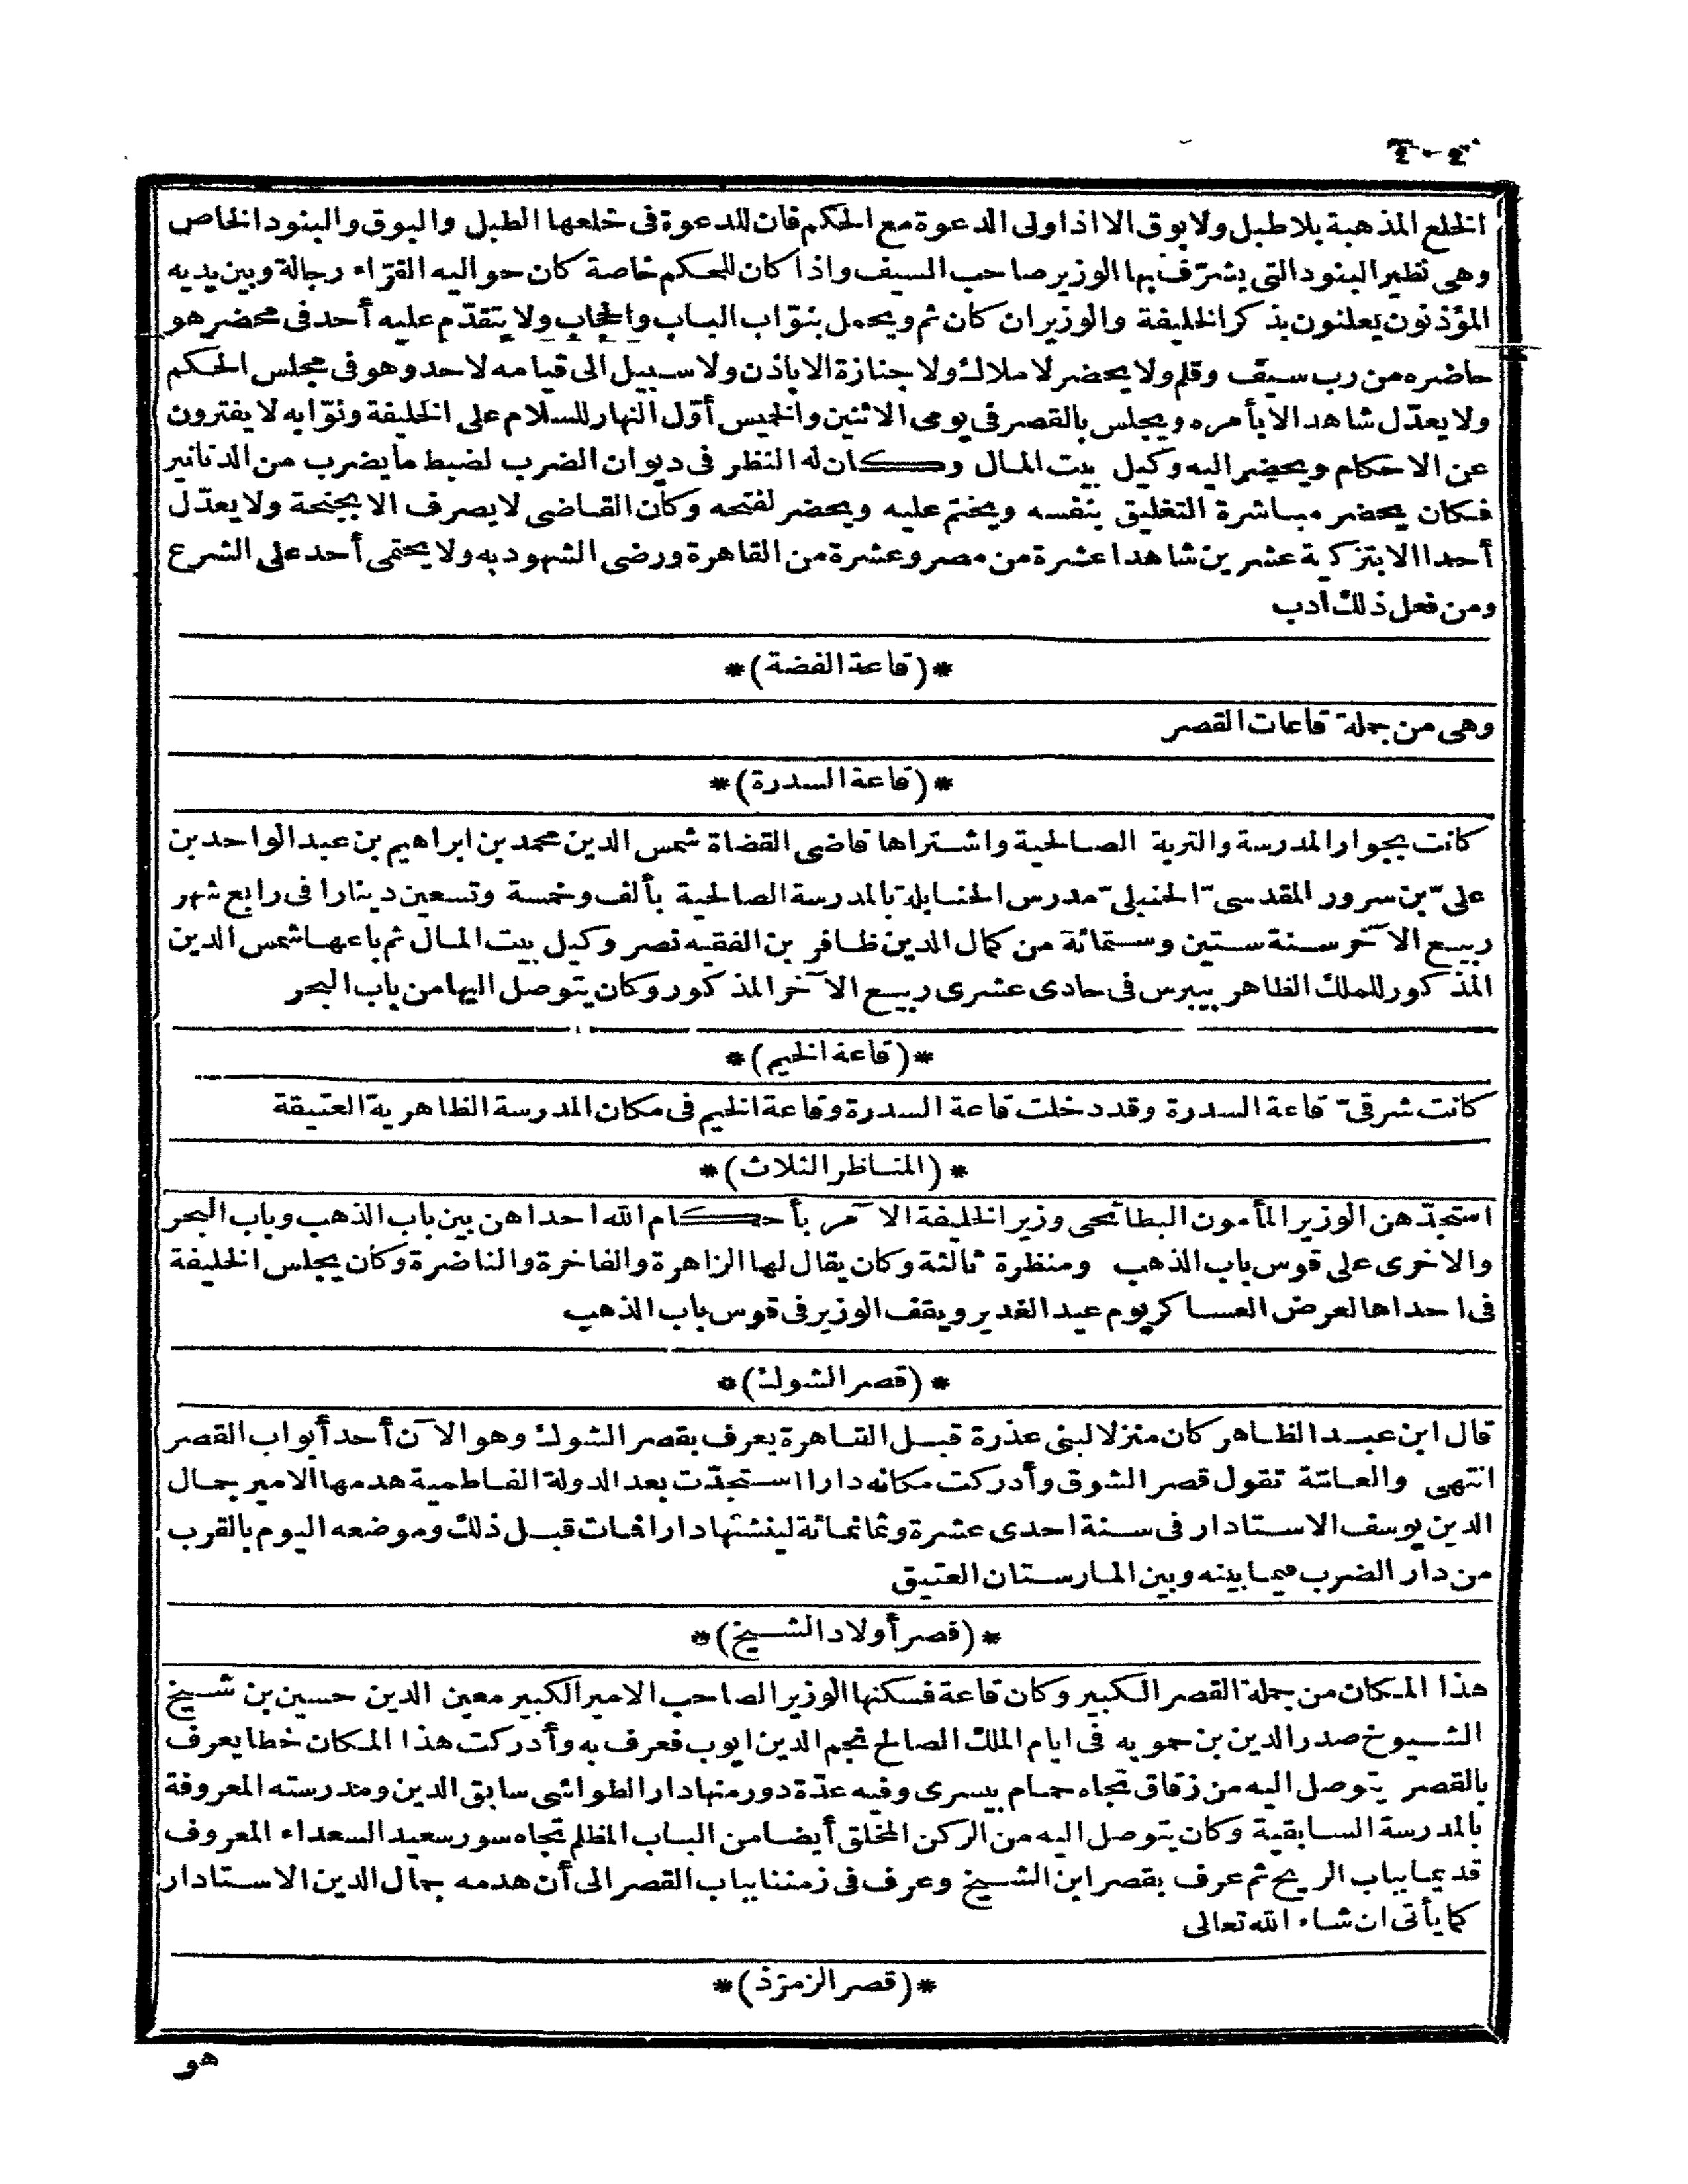 ٤٠٤
الخلع المذهبة بلا طبل ولا بوق الا اذا ولى الدعوة مع الحكم فان للدعوة فى خلعها الطبل والبوق والبنود الخاص
وهى نظير البنود التى يشرّف بها الوزير صاحب السيف واذا كان للحكم خاصة كان حواليه القرّاء رجالة وبين يديه
المؤذنون يعلنون بذكر الخليفة والوزير ان كان ثم ويحمل بنوّاب الباب والحجاب ولا يتقدّم عليه أحد فى محضر هو
حاضره من رب سيف وقلم ولا يحضر لاملاك ولا جنازة الا باذن ولا سبيل الى قيامه لاحد وهو فى مجلس الحكم
ولا يعدّل شاهد الا بأمره ويجلس بالقصر فى يومى الاثنين والخميس أوّل النهار للسلام على الخليفة ونوّابه لا يفترون
عن الاحكام ويحضر اليه وكيل بيت المال وكان له النظر فى ديوان الضرب لضبط ما يضرب من الدنانير
فكان يحضر مباشرة التغليق بنفسه ويختم عليه ويحضر لفتحه وكان القاضى لا يصرف الا بجنحة ولا يعدّل
أحدا الا بتزكية عشرين شاهدا عشرة من مصر وعشرة من القاهرة ورضى الشهود به ولا يحتمى أحد على الشرع
ومن فعل ذلك أدب
*(قاعة الفضة)*
وهى من جملة قاعات القصر
*(قاعة السدرة)*
كانت بجوار المدرسة والتربة الصالحية واشتراها قاضى القضاة شمس الدين محمد بن ابراهيم بن عبد الواحد بن
علىّ بن سرور المقدسىّ الحنبلىّ مدرس الحنابلة بالمدرسة الصالحية بألف وخمسة وتسعين دينارا فى رابع شهر
ربيع الآخر سنة ستين وستمائة من كمال الدين ظافر بن الفقيه نصر وكيل بيت المال ثم باعها شمس الدين
المذكور للملك الظاهر بيبرس فى حادى عشرى ربيع الآخر المذكور وكان يتوصل اليها من باب البحر
*(قاعة الخيم)*
كانت شرقىّ قاعة السدرة وقد دخلت قاعة السدرة وقاعة الخيم فى مكان المدرسة الظاهرية العتيقة
*(المناظر الثلاث)*
استجدّهن الوزير المأمون البطائحى وزير الخليفة الآمر بأحكام الله احداهن بين باب الذهب وباب البحر
والاخرى على قوس باب الذهب ومنظرة ثالثة وكان يقال لها الزاهرة والفاخرة والناضرة وكان يجلس الخليفة
فى احداها لعرض العساكر يوم عيد الغدير ويقف الوزير فى قوس باب الذهب
*(قصر الشوك)*
قال ابن عبد الظاهر كان منزلا لبنى عذرة قبل القاهرة يعرف بقصر الشوك وهو الآن أحد أبواب القصر
انتهى والعامّة تقول قصر الشوق وأدركت مكانه دارا استجدّت بعد الدولة الفاطمية هدمها الامير جمال
الدين يوسف الاستادار فى سنة احدى عشرة وثمانمائة لينشئها دارا فمات قبل ذلك وموضعه اليوم بالقرب
من دار الضرب فيما بينه وبين المارستان العتيق
*(قصر أولاد الشيخ)*
هذا المكان من جملة القصر الكبير وكان قاعة فسكنها الوزير الصاحب الامير الكبير معين الدين حسين بن شيخ
الشيوخ صدر الدين بن حمويه فى ايام الملك الصالح نجم الدين ايوب فعرف به وأدركت هذا المكان خطا يعرف
بالقصر يتوصل اليه من زقاق تجاه حمام بيسرى وفيه عدّة دور منها دار الطواشى سابق الدين ومدرسته المعروفة
بالمدرسة السابقية وكان يتوصل اليه من الركن المخلق أيضا من الباب المظلم تجاه سور سعيد السعداء المعروف
قديما بباب الريح ثم عرف بقصر ابن الشيخ وعرف فى زمننا بباب القصر الى أن هدمه جمال الدين الاستادار
كما يأتى ان شاء الله تعالى
*(قصر الزمرّذ)*
هو